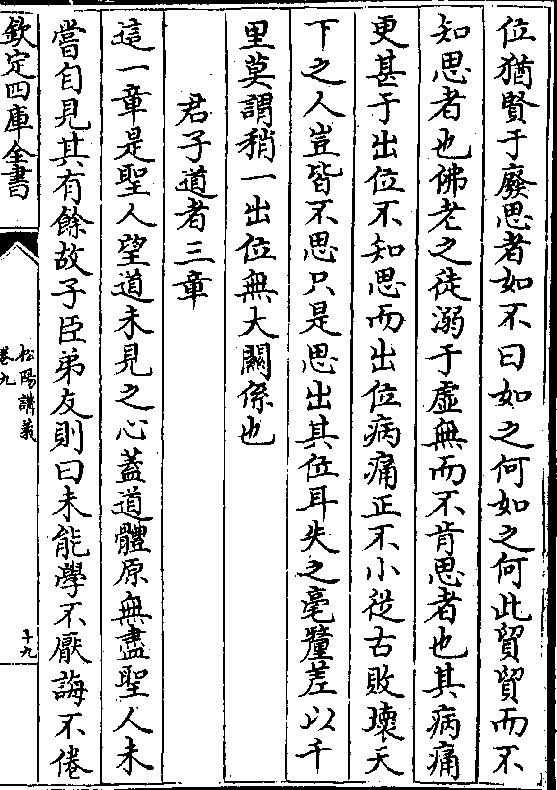 位猶賢于廢思者如不曰如之何如之何此貿貿而不
知思者也佛老之徒溺于虛無而不肯思者也其病痛
更甚于出位不知思而出位病痛正不小從古敗壞天
下之人豈皆不思只是思出其位耳失之毫釐差以千
里莫謂稍一出位無大關係也
君子道者三章
這一章是聖人望道未見之心蓋道體原無盡聖人未
嘗自見其有餘故子臣弟友則曰未能學不厭誨不倦
欽定四庫全書
松陽講義
卷九
十九